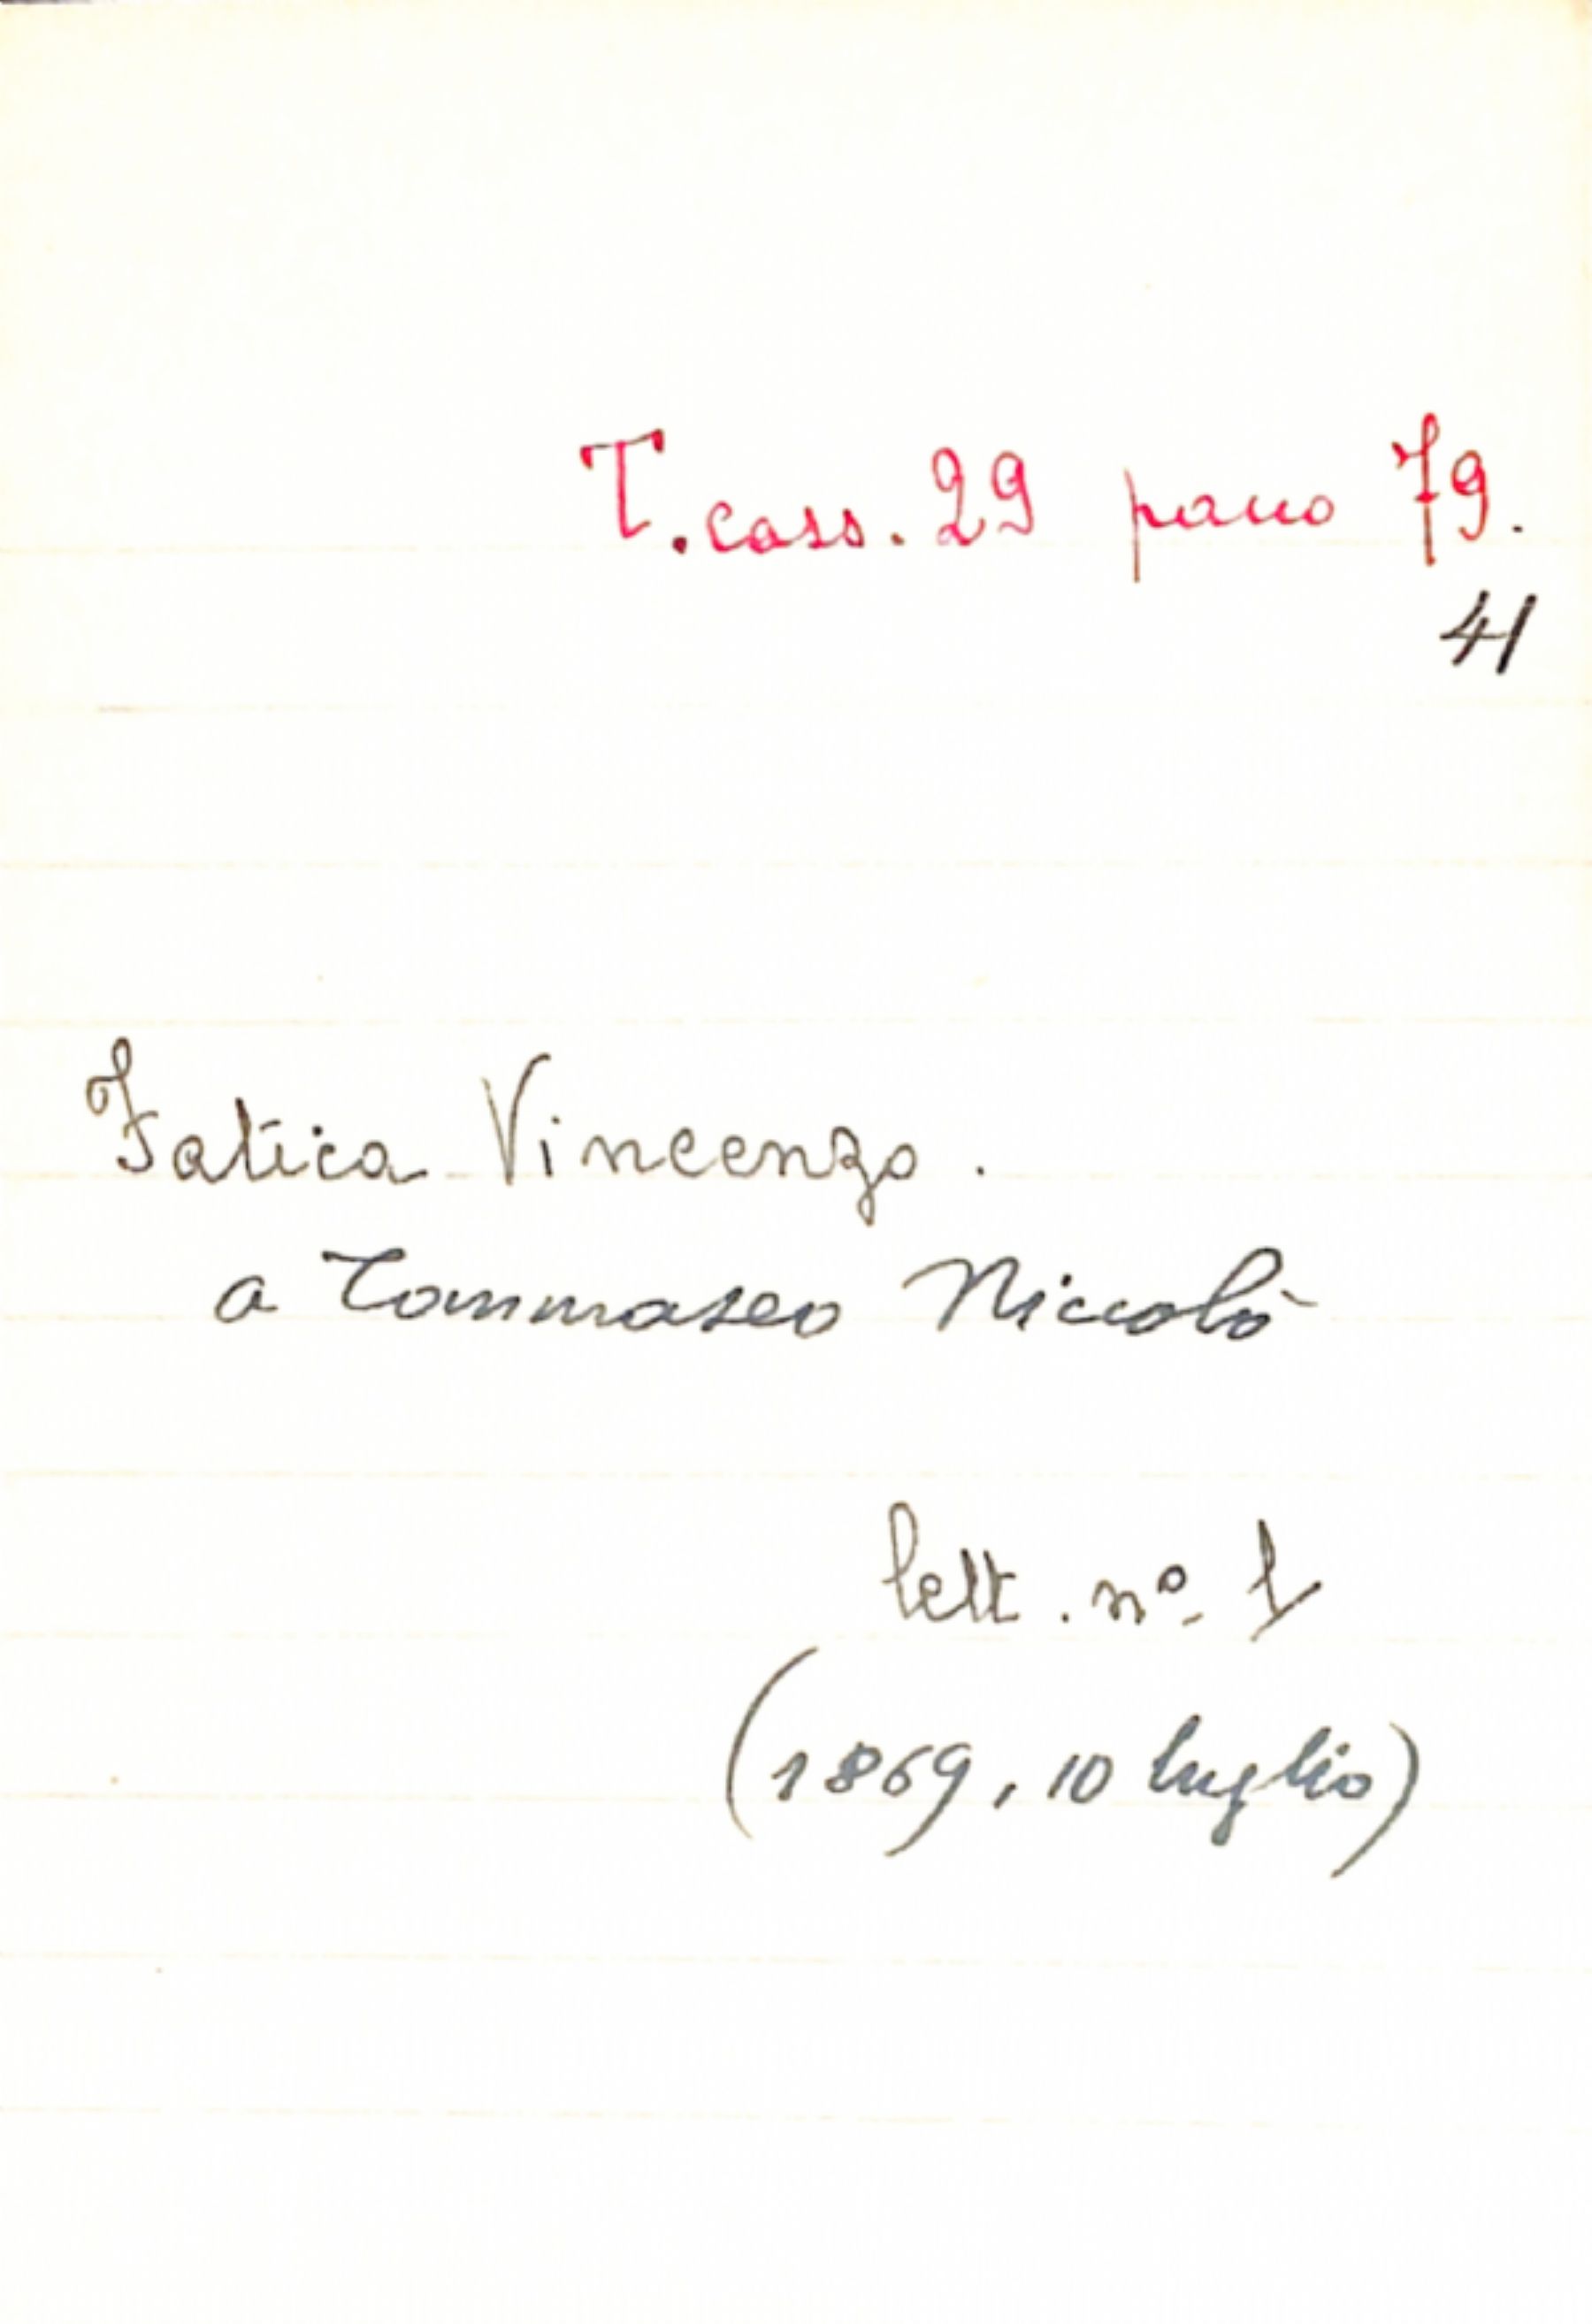 T. cass. 29 pacco 79.
41
Fatica Vincenzo.
a Tommaseo Niccolò
lett. nº 1
(1869, 10 luglio)